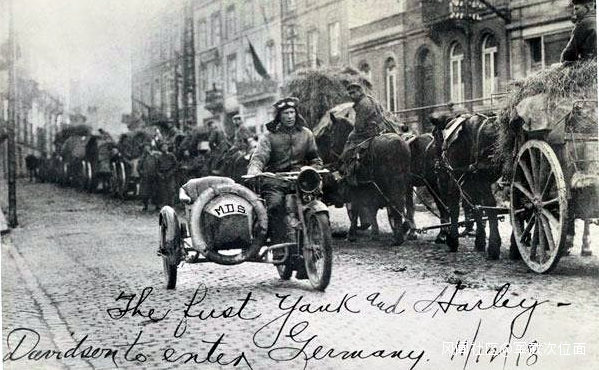 MDS
The first Yank and Harley-
Davidson to enter Germany. 11/12/18